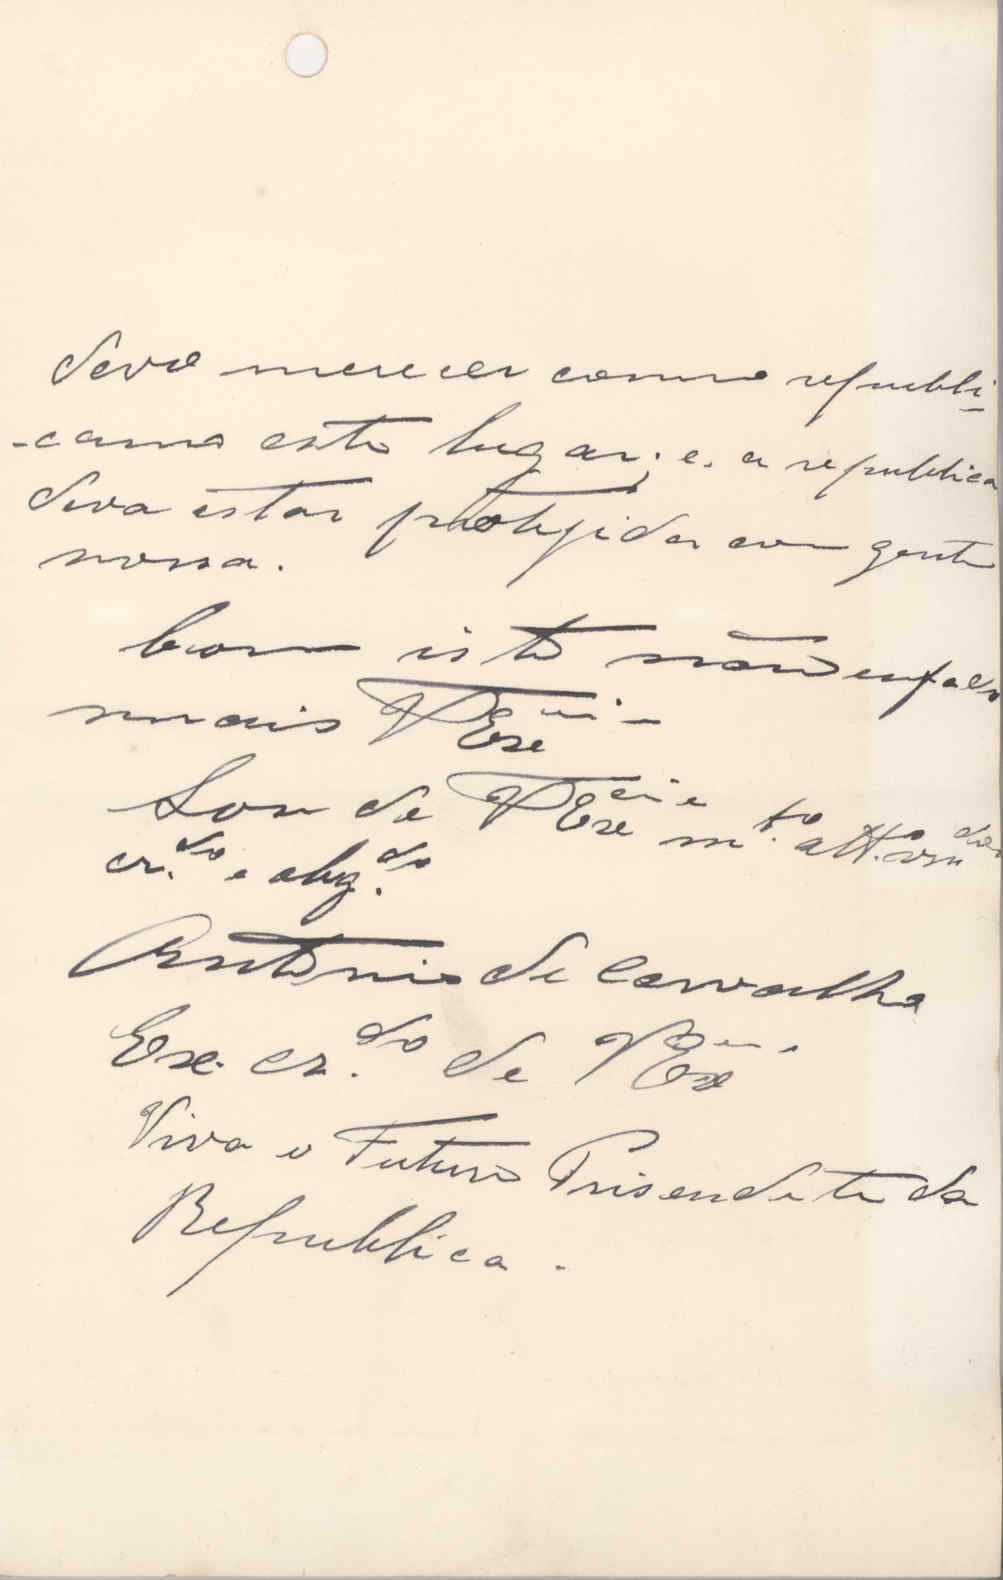 devo merecer como republi-
-cano este lugar; e. a republica
deva estar protejida com gente
nossa.
Com isto não enfado
mais V Exc.ia
Sou de V Exc.ia m.to att.o ven.dor
cr.do e obg.do
Antonio de Carvalho
Ex. cr.do de V Ex.
Viva o Futuro Prisendete da
Republica.